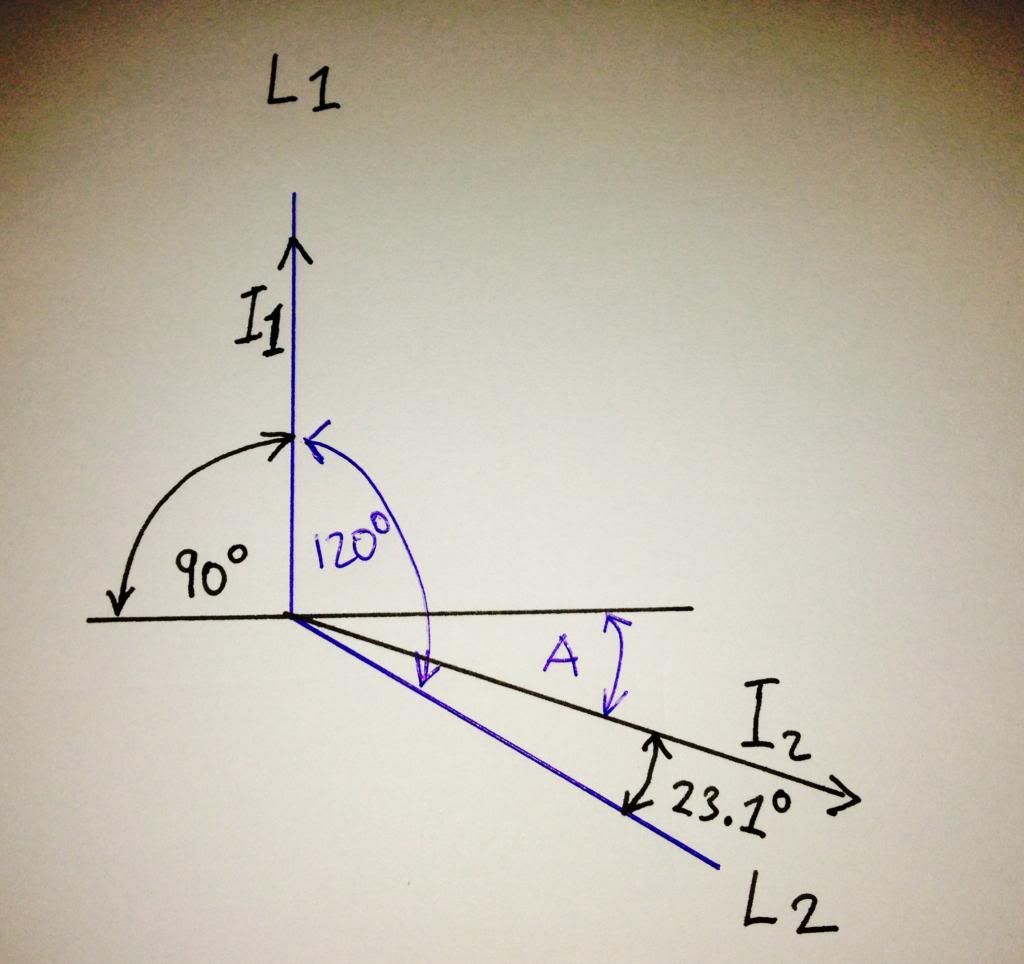 L1
I1
90°
120°
A
I2
23.1°
L2